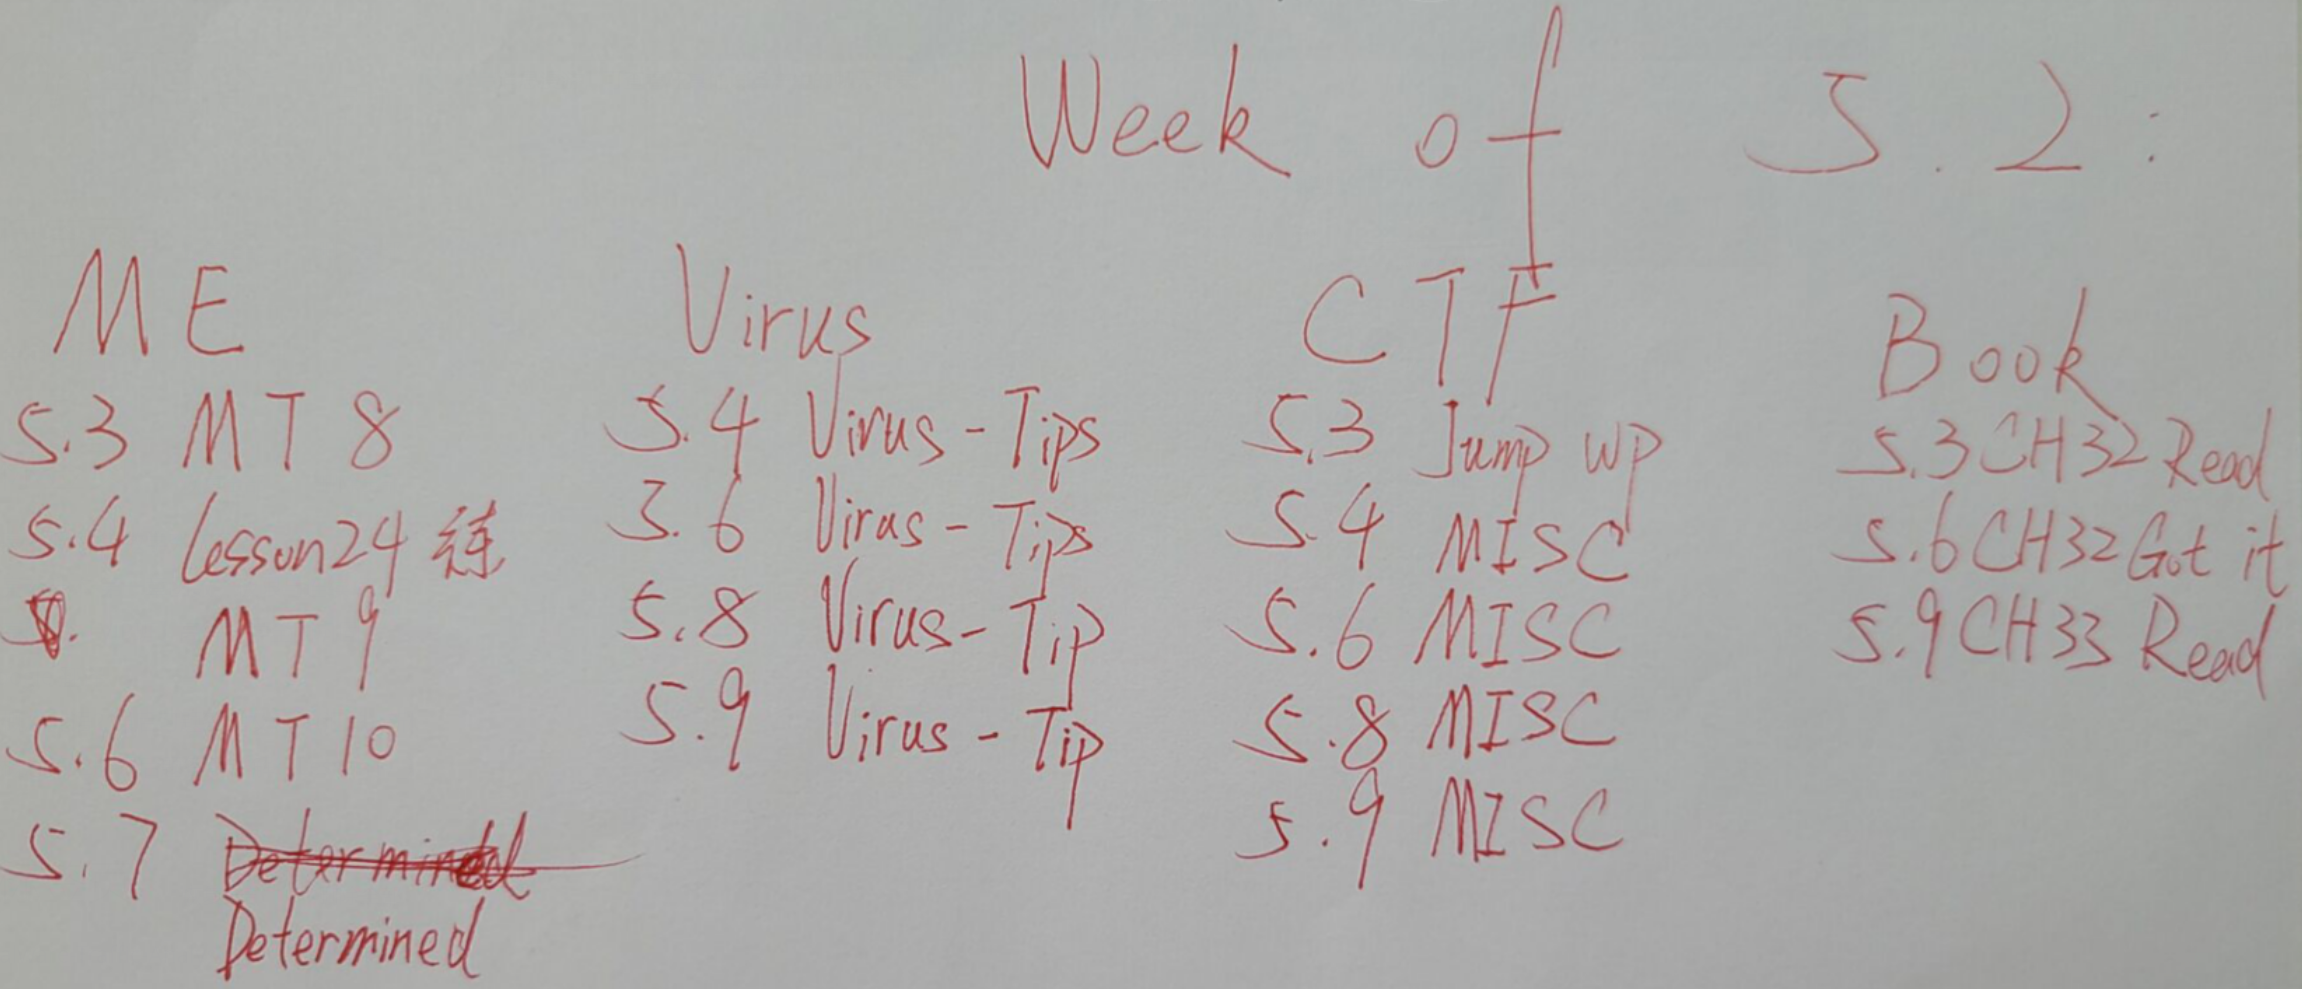 Week of 5.2:
ME
5.3 MT 8
5.4 Lesson24 练
MT 9
5.6 MT 10
5.7 Determined
Determined
Virus
5.4 Virus-Tips
5.6 Virus-Tips
5.8 Virus-Tip
5.9 Virus-Tip
CTF
5.3 Jump WP
5.4 MISC
5.6 MISC
5.8 MISC
5.9 MISC
Book
5.3 CH32 Read
5.6 CH32 Got it
5.9 CH33 Read